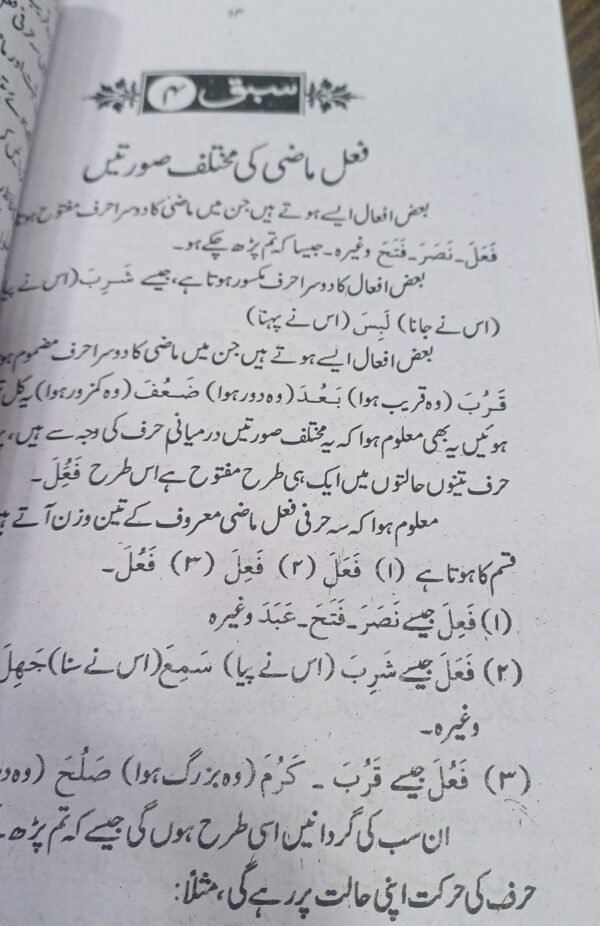 ۱۳
سبق ۴
فعل ماضی کی مختلف صورتیں
بعض افعال ایسے ہوتے ہیں جن میں ماضی کا دوسرا حرف مفتوح
فَعَلَ۔ نَصَرَ۔ فَتَحَ وغیرہ۔ جیسا کہ تم پڑھ چکے ہو۔
بعض افعال کا دوسرا حرف مکسور ہوتا ہے، جیسے شَرِبَ (اس نے پیا
(اس نے جانا) لَبِسَ (اس نے پہنا)
بعض افعال ایسے ہوتے ہیں جن میں ماضی کا دوسرا حرف مضموم
قَرُبَ (وہ قریب ہوا) بَعُدَ (وہ دور ہوا) ضَعُفَ (وہ کمزور ہوا) یہ کل
ہوئیں یہ بھی معلوم ہوا کہ یہ مختلف صورتیں درمیانی حرف کی وجہ سے ہیں،
حرف تینوں حالتوں میں ایک ہی طرح مفتوح ہے اس طرح
معلوم ہوا کہ سہ حرفی فعل ماضی معروف کے تین وزن آتے
قسم کا ہوتا ہے (۱) فَعَلَ (۲) فَعِلَ (۳) فَعُلَ۔
(۱) فَعِلَ جیسے نَصَرَ۔ فَتَحَ۔ عَبَدَ وغیرہ
(۲) فَعَلَ جیسے شَرِبَ (اس نے پیا) سَمِعَ (اس نے سنا) جَهِلَ
وغیرہ۔
(۳) فَعُلَ جیسے قَرُبَ ۔ کَرُمَ (وہ بزرگ ہوا) صَلُحَ (وہ
ان سب کی گردانیں اسی طرح ہوں گی جیسے کہ تم پڑھ
حرف کی حرکت اپنی حالت پر رہے گی، مثلاً: